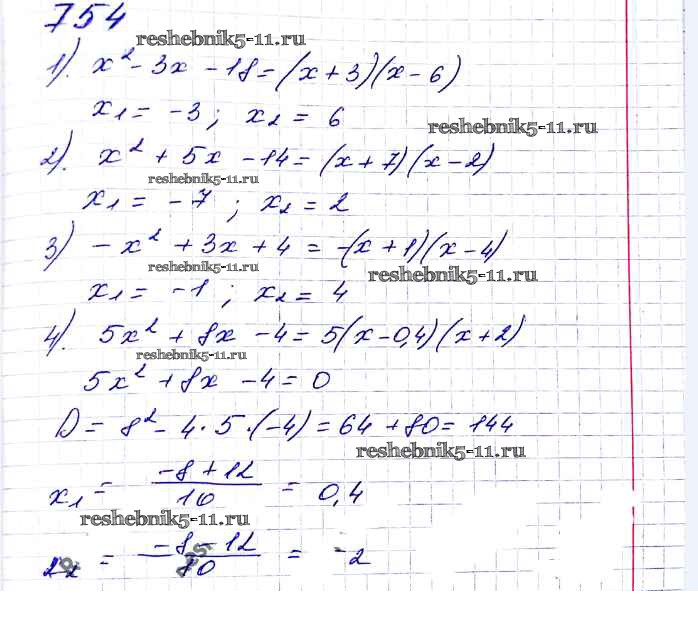 754
reshebnik5-11.ru
1). x² - 3x - 18 = (x + 3)(x - 6)
x₁ = -3; x₂ = 6
reshebnik5-11.ru
2). x² + 5x - 14 = (x + 7)(x - 2)
reshebnik5-11.ru
x₁ = -7; x₂ = 2
3) -x² + 3x + 4 = -(x + 1)(x - 4)
reshebnik5-11.ru
reshebnik5-11.ru
x₁ = -1; x₂ = 4
4). 5x² + 8x - 4 = 5(x - 0,4)(x + 2)
reshebnik5-11.ru
5x² + 8x - 4 = 0
D = 8² - 4·5·(-4) = 64 + 80 = 144
reshebnik5-11.ru
x₁ = (-8 + 12)/10 = 0,4
reshebnik5-11.ru
x₂ = (-8 - 12)/10 = -2